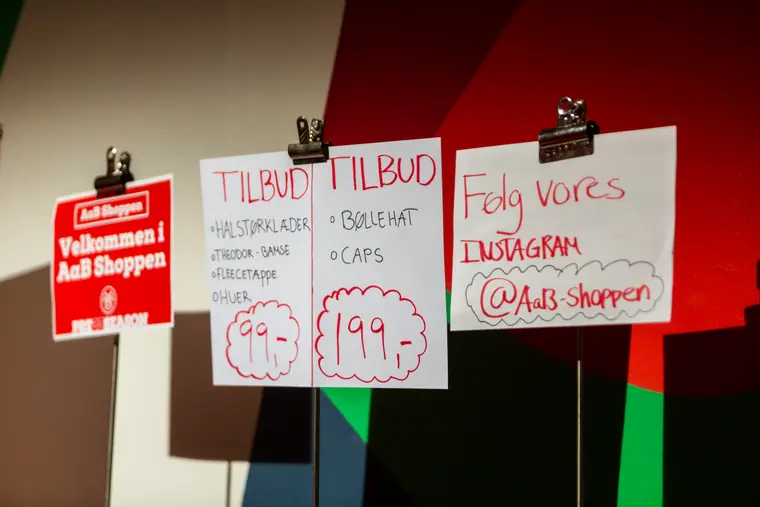 AaB Shoppen
Velkommen i
AaB Shoppen
TILBUD
◦HALSTØRKLÆDER
◦THEODOR-BAMSE
◦FLEECETÆPPE
◦HUER
99,-
TILBUD
◦BØLLEHAT
◦CAPS
199,-
Følg vores
INSTAGRAM
@AaB-Shoppen